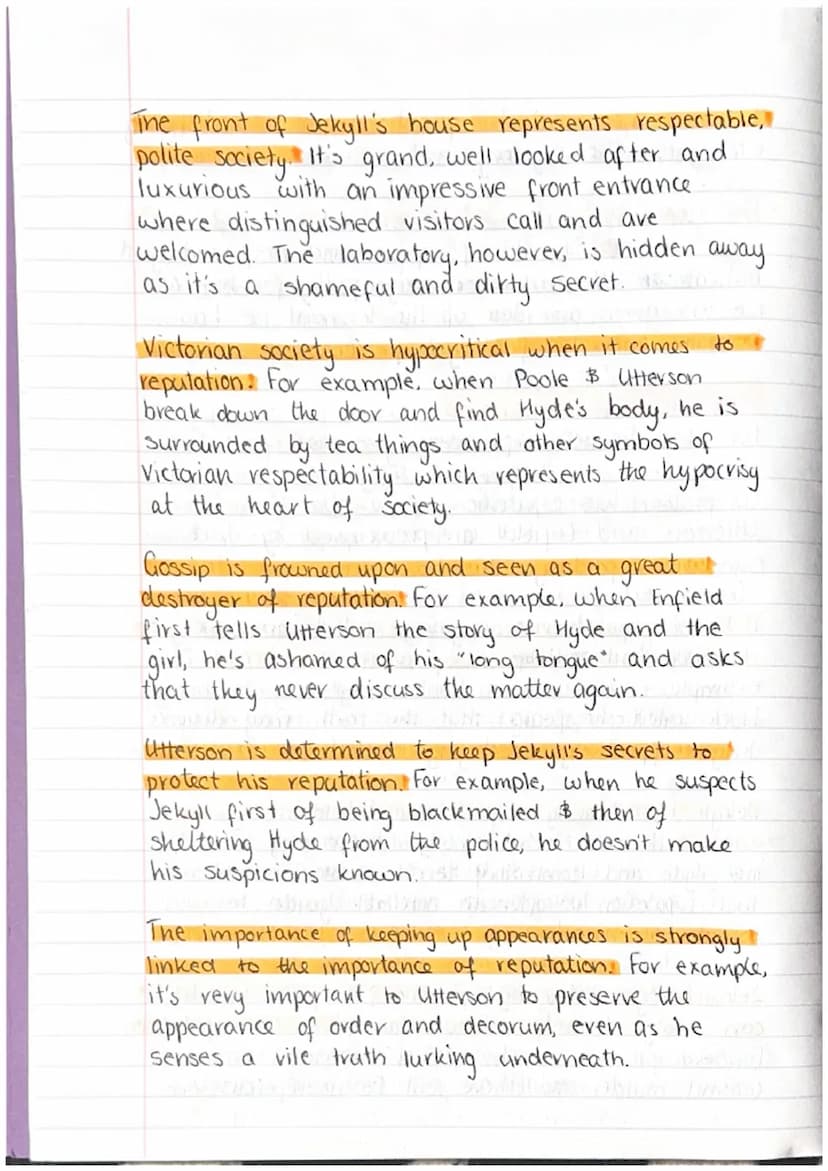 The front of Jekyll's house represents respectable,
polite society. It's grand, well looked after and
luxurious with an impressive front entrance
where distinguished visitors call and are
welcomed. The laboratory, however, is hidden away
as it's a shameful and dirty secret.
Victorian society is hypocritical when it comes to
reputation. For example, when Poole & Utterson
break down the door and find Hyde's body, he is
surrounded by tea things and other symbols of
Victorian respectability which represents the hypocrisy
at the heart of society.
Gossip is frowned upon and seen as a great
destroyer of reputation. For example, when Enfield
first tells Utterson the story of Hyde and the
girl, he's ashamed of his "long tongue" and asks
that they never discuss the matter again.
Utterson is determined to keep Jekyll's secrets to
protect his reputation. For example, when he suspects
Jekyll first of being blackmailed & then of
sheltering Hyde from the police, he doesn't make
his suspicions known.
The importance of keeping up appearances is strongly
linked to the importance of reputation. For example,
it's very important to Utterson to preserve the
appearance of order and decorum, even as he
senses a vile truth lurking underneath.